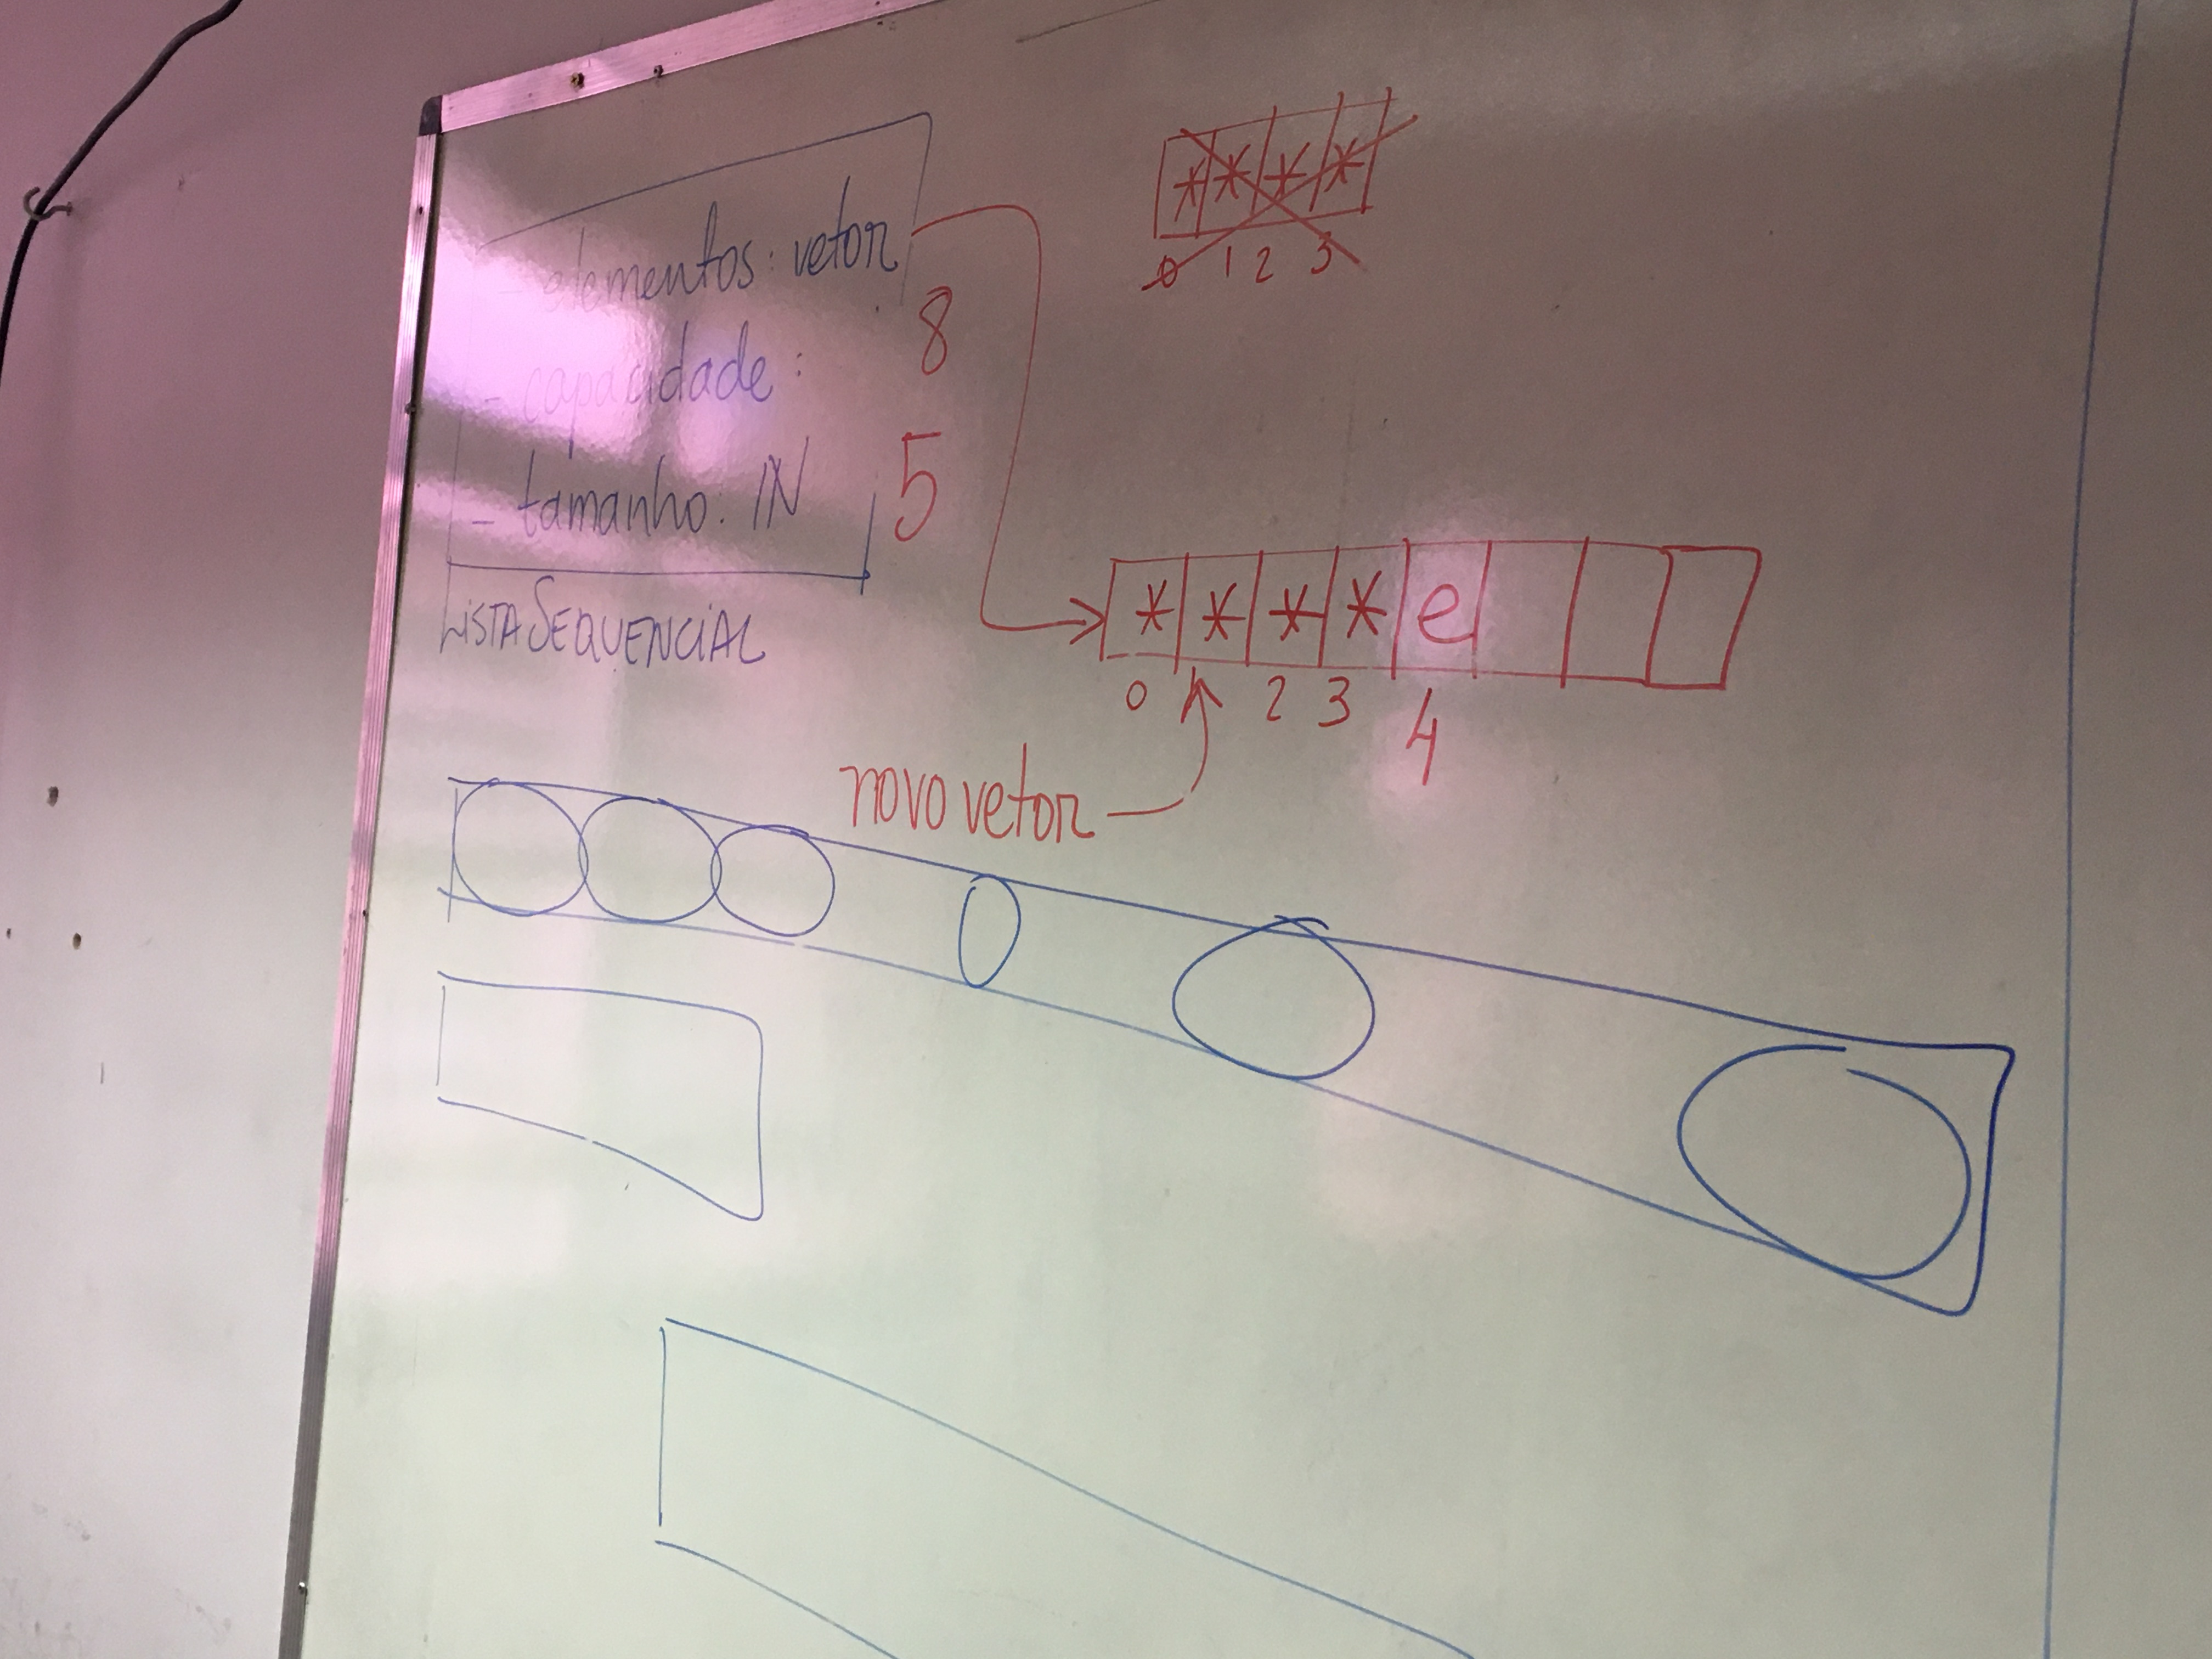 - elementos: vetor
- capacidade: 8
- tamanho: IN 5
LISTASEQUENCIAL
* * * *
0 1 2 3
* * * * e
0 1 2 3 4
novo vetor